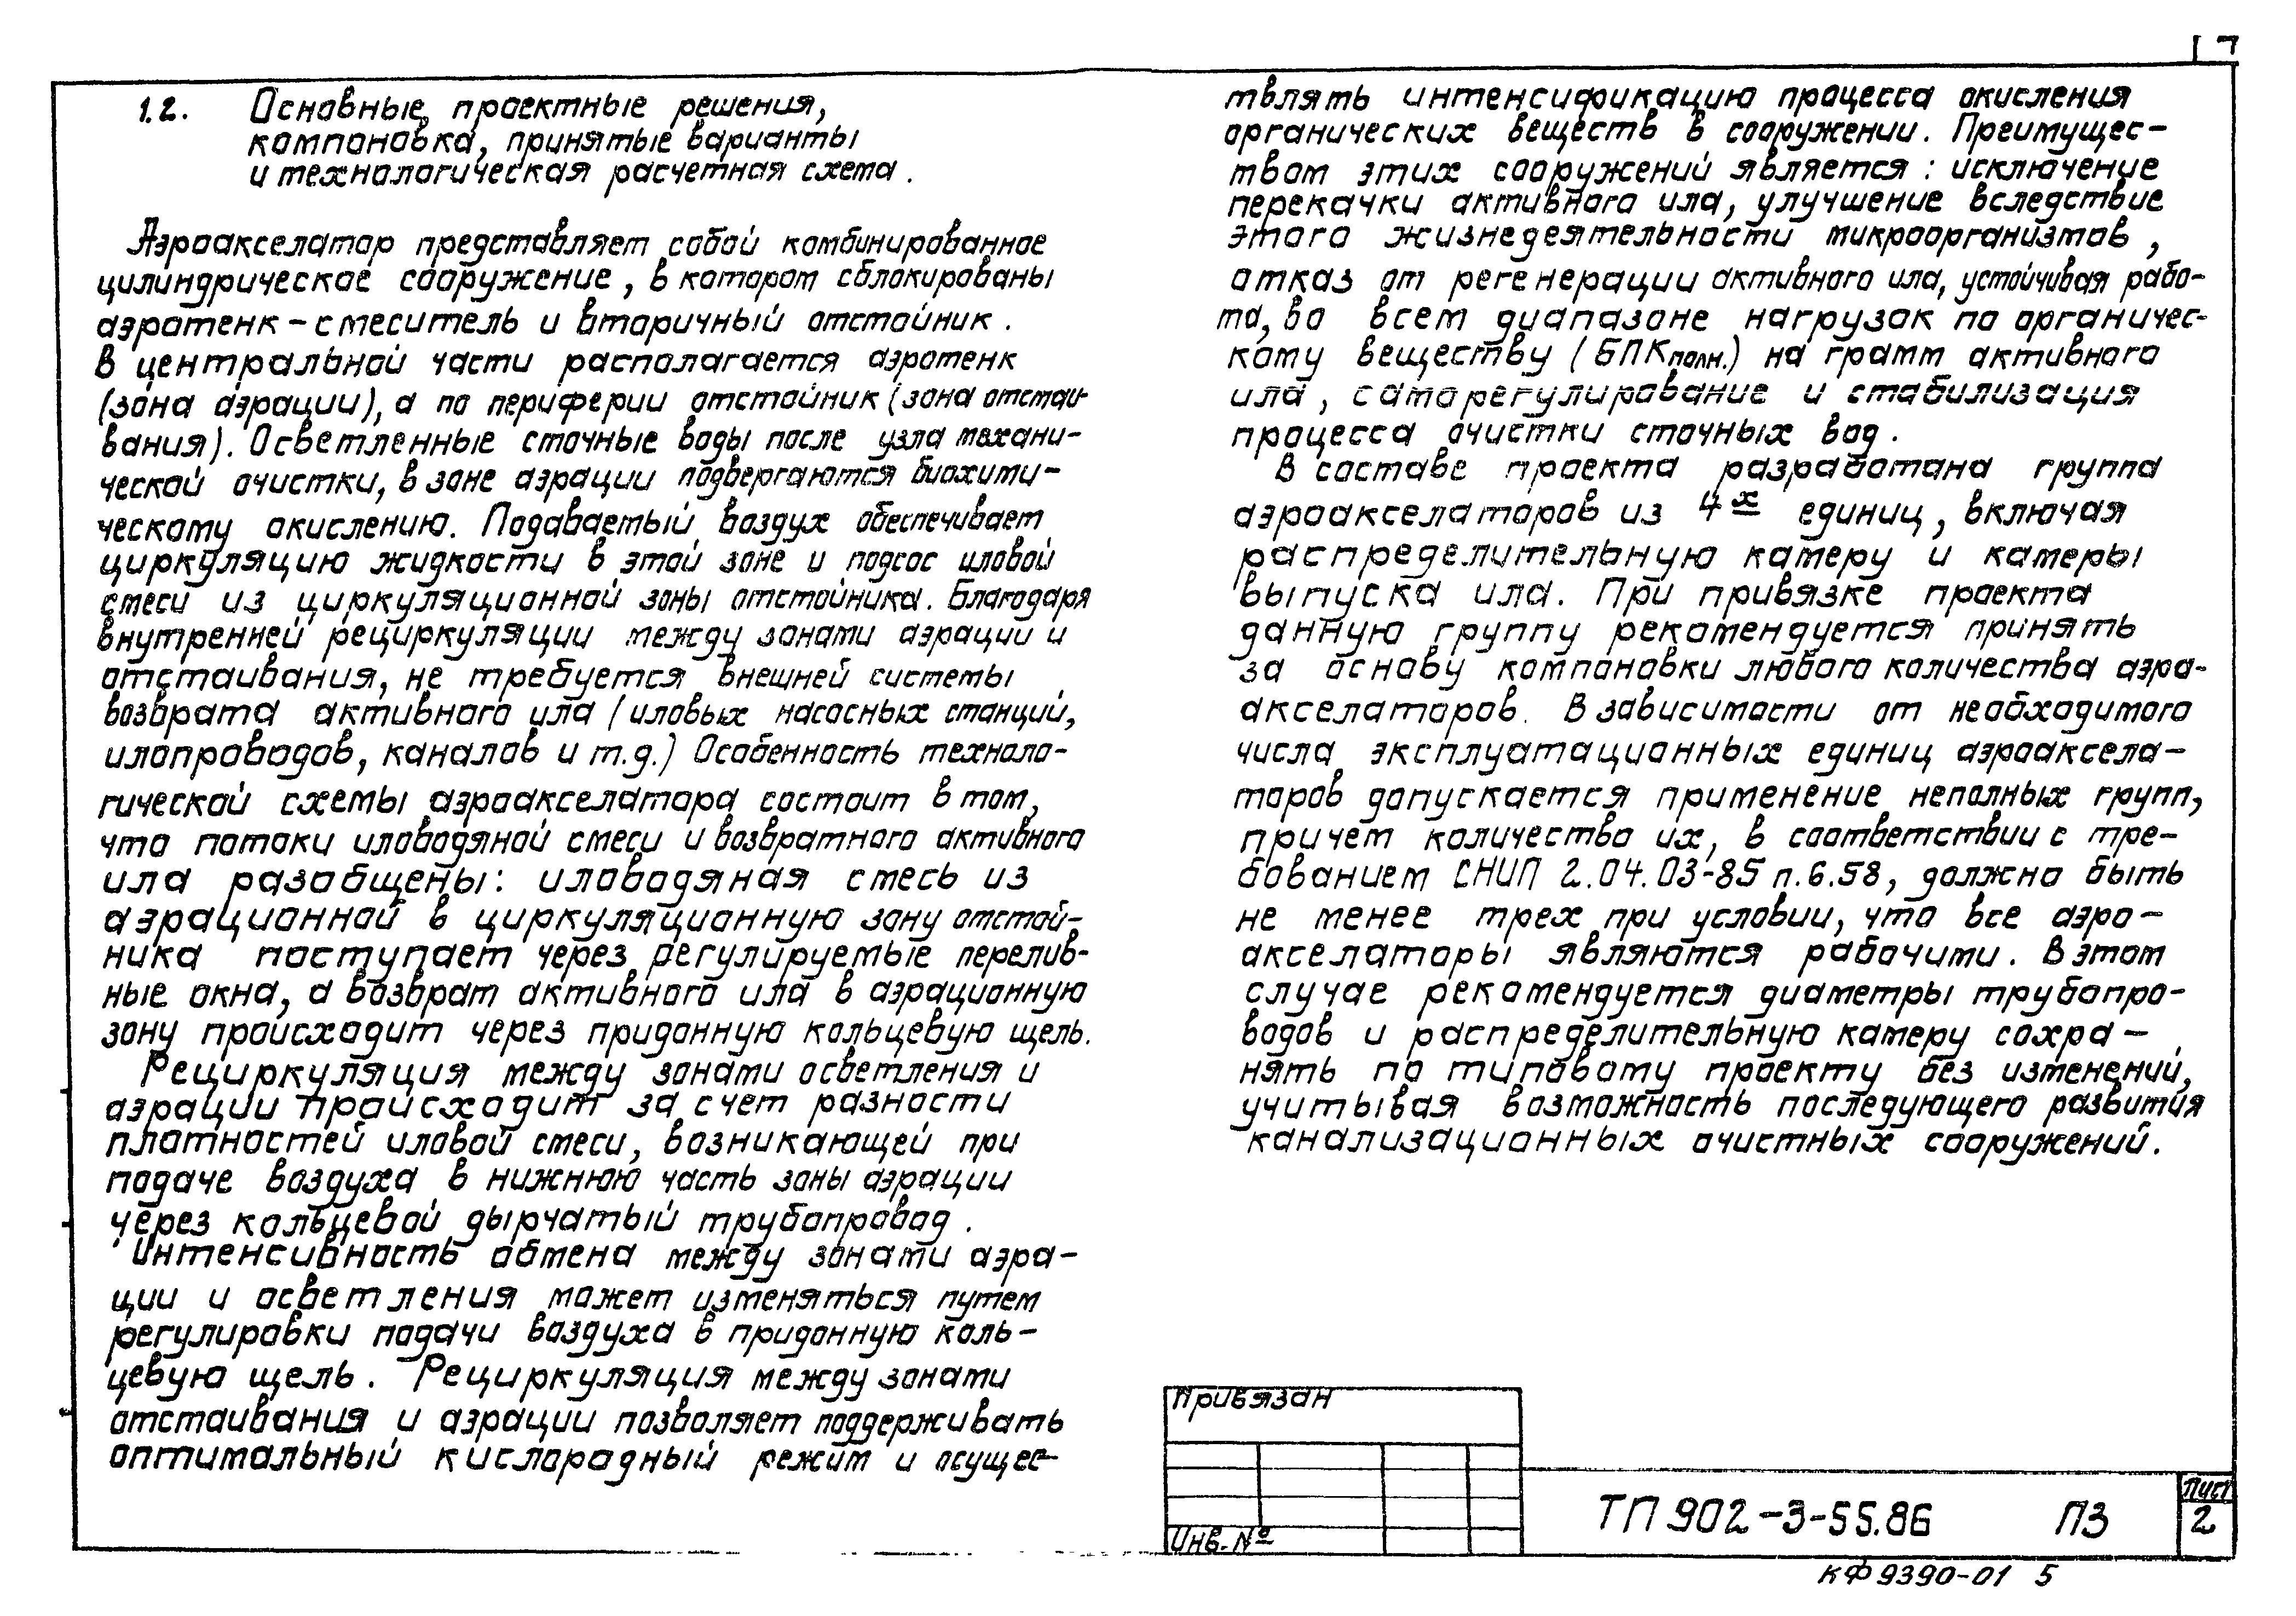 1.2. Основные проектные решения,
компоновка, принятые варианты
и технологическая расчетная схема.
Аэроакселатор представляет собой комбинированное
цилиндрическое сооружение, в котором сблокированы
аэротенк-смеситель и вторичный отстойник.
В центральной части располагается аэротенк
(зона аэрации), а по периферии отстойник (зона отстаи-
вания). Осветленные сточные воды после узла механи-
ческой очистки, в зоне аэрации подвергаются биохими-
ческому окислению. Подаваемый воздух обеспечивает
циркуляцию жидкости в этой зоне и подсос иловой
смеси из циркуляционной зоны отстойника. Благодаря
внутренней рециркуляции между зонами аэрации и
отстаивания, не требуется внешней системы
возврата активного ила (иловых насосных станций,
илопроводов, каналов и т.д.) Особенность техноло-
гической схемы аэроакселатора состоит в том,
что потоки иловодяной смеси и возвратного активного
ила разобщены: иловодяная смесь из
аэрационной в циркуляционную зону отстой-
ника поступает через регулируемые перелив-
ные окна, а возврат активного ила в аэрационную
зону происходит через придонную кольцевую щель.
Рециркуляция между зонами осветления и
аэрации происходит за счет разности
плотностей иловой смеси, возникающей при
подаче воздуха в нижнюю часть зоны аэрации
через кольцевой дырчатый трубопровод.
Интенсивность обмена между зонами аэра-
ции и осветления может изменяться путем
регулировки подачи воздуха в придонную коль-
цевую щель. Рециркуляция между зонами
отстаивания и аэрации позволяет поддерживать
оптимальный кислородный режим и осущес-
твлять интенсификацию процесса окисления
органических веществ в сооружении. Преимущес-
твом этих сооружений является: исключение
перекачки активного ила, улучшение вследствие
этого жизнедеятельности микроорганизмов,
отказ от регенерации активного ила, устойчивая рабо-
та, во всем диапазоне нагрузок по органичес-
кому веществу (БПКполн.) на грамм активного
ила, саморегулирование и стабилизация
процесса очистки сточных вод.
В составе проекта разработана группа
аэроакселаторов из 4х единиц, включая
распределительную камеру и камеры
выпуска ила. При привязке проекта
данную группу рекомендуется принять
за основу компоновки любого количества аэро-
акселаторов. В зависимости от необходимого
числа эксплуатационных единиц аэроаксела-
торов допускается применение неполных групп,
причем количество их, в соответствии с тре-
бованием СНИП 2.04.03-85 п.6.58, должно быть
не менее трех при условии, что все аэро-
акселаторы являются рабочими. В этом
случае рекомендуется диаметры трубопро-
водов и распределительную камеру сохра-
нять по типовому проекту без изменений,
учитывая возможность последующего развития
канализационных очистных сооружений.
Привязан
Инв. №
ТП 902-3-55.86 ПЗ
Лист
2
КФ 9390-01 5